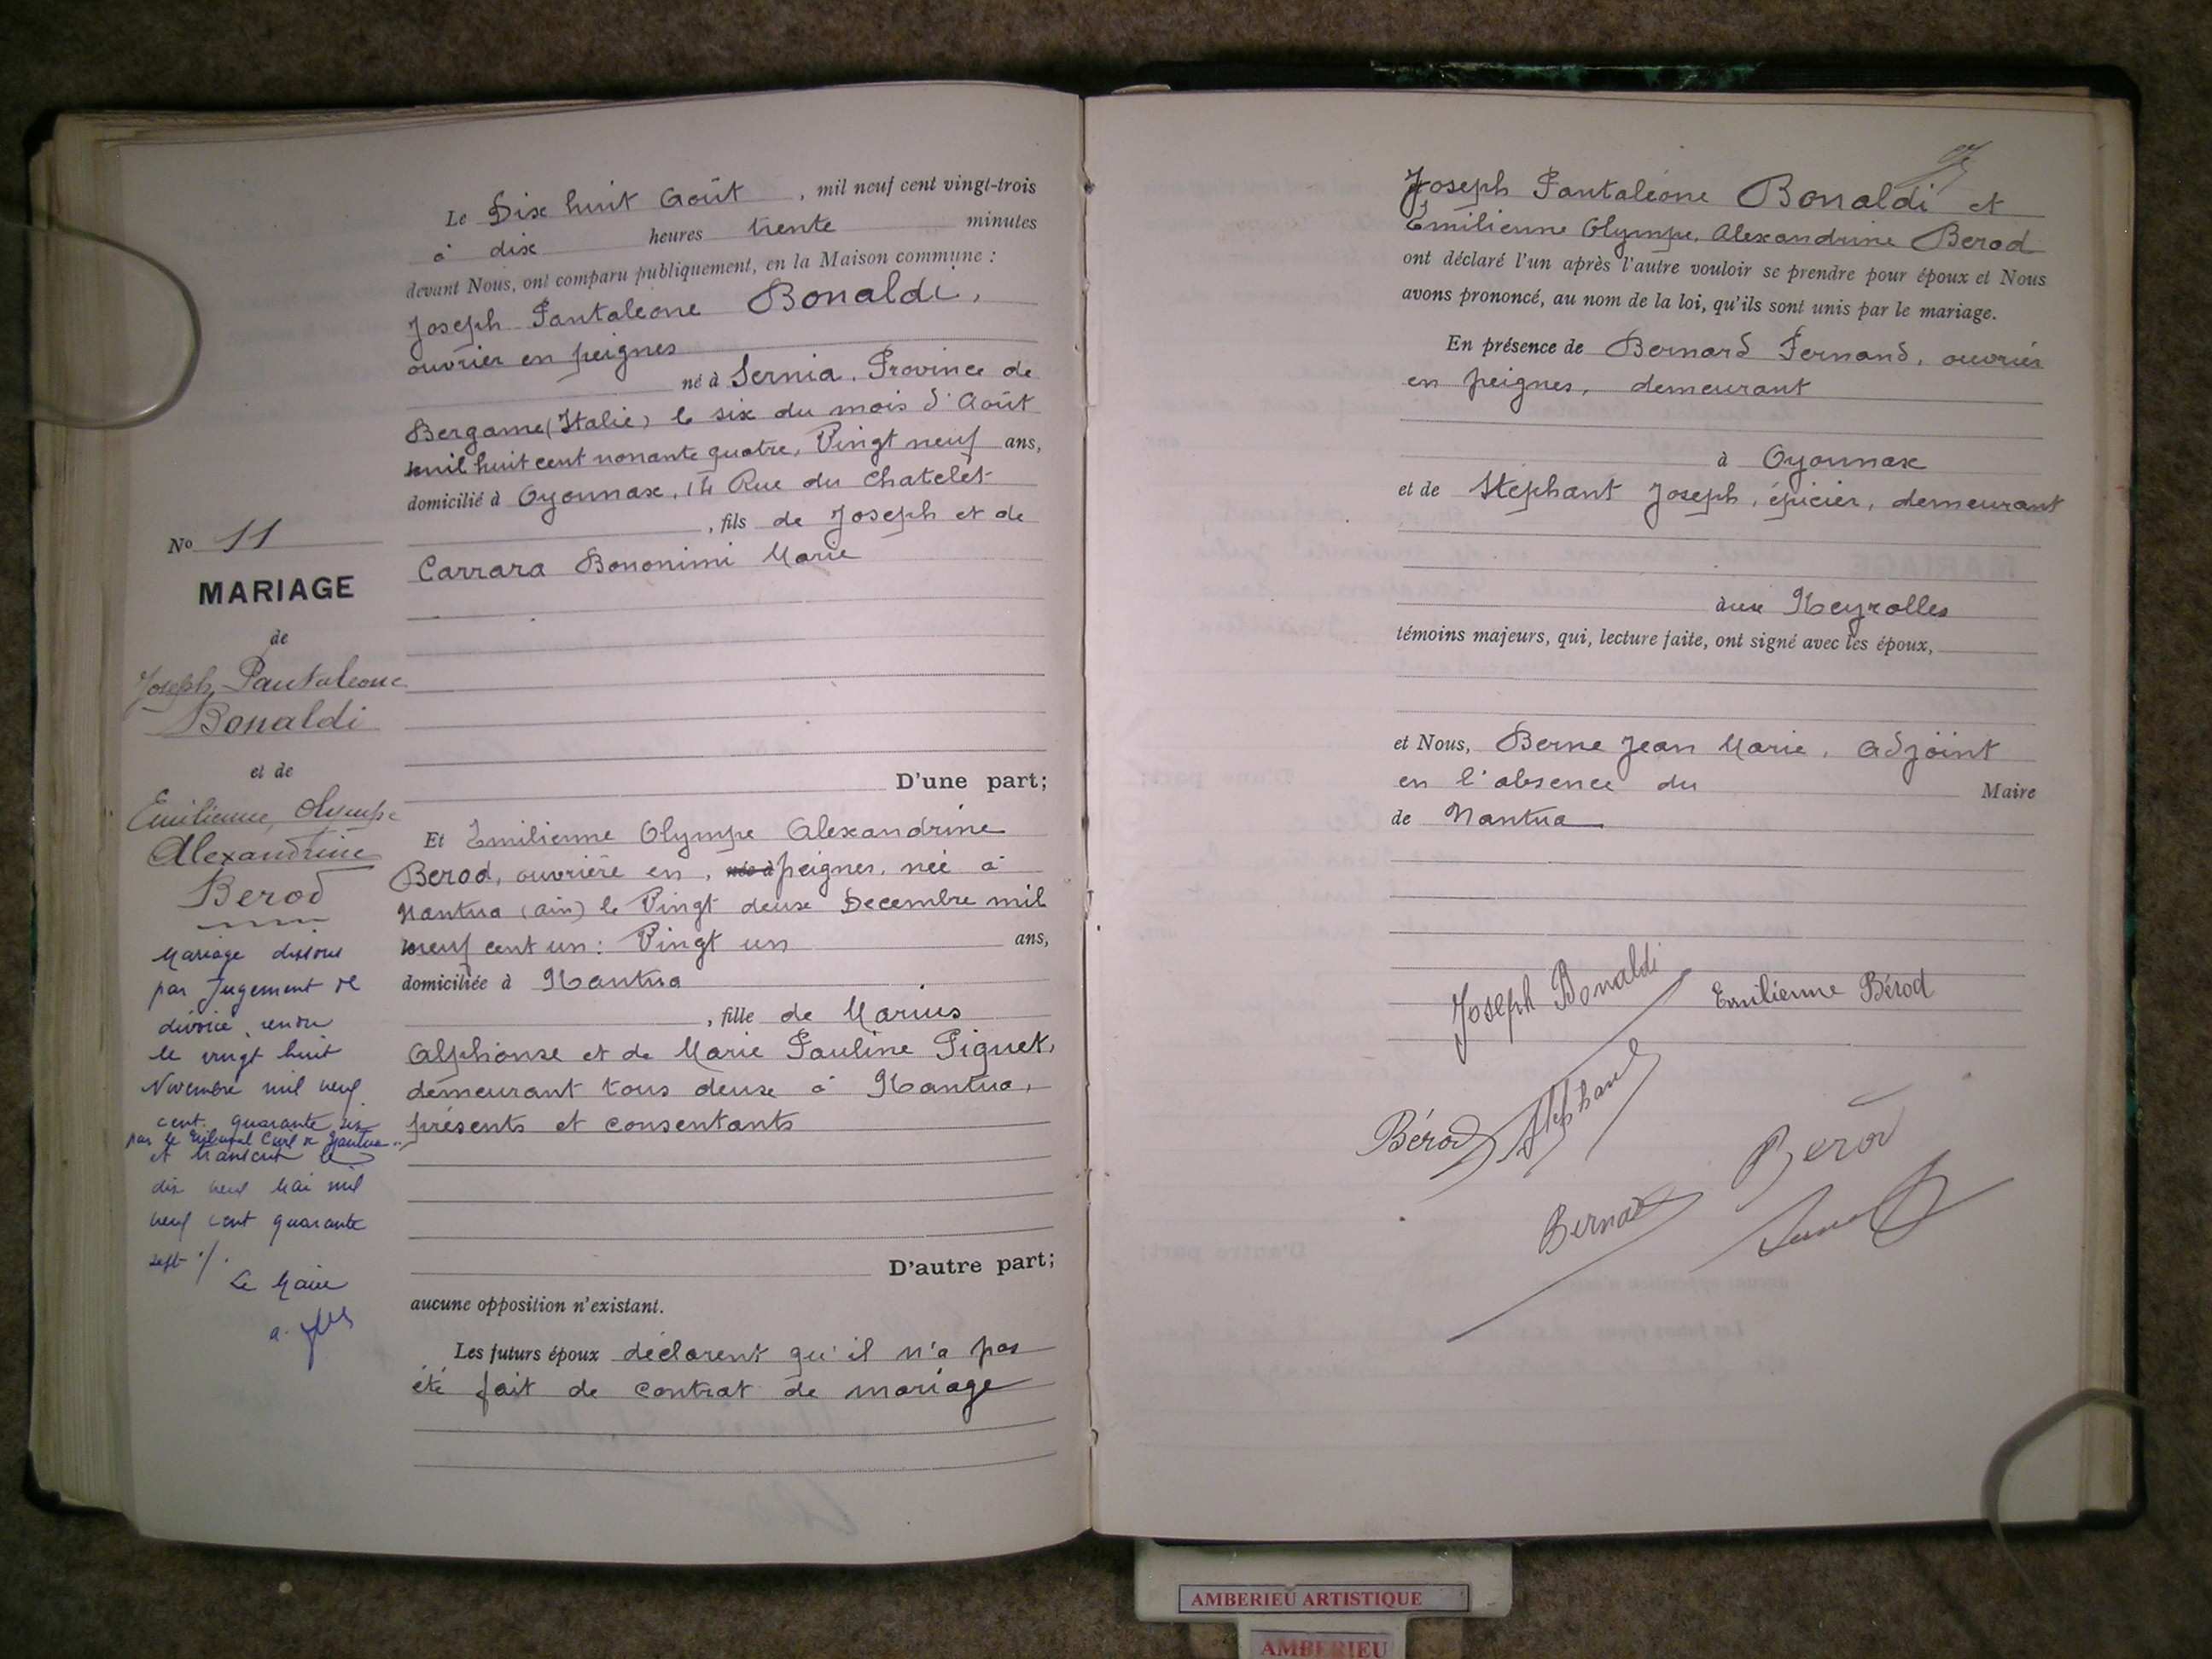 Le Dix huit Août, mil neuf cent vingt-trois
à dix heures trente minutes
devant Nous, ont comparu publiquement, en la Maison commune :
Joseph Pantaléone Bonaldi,
ouvrier en peignes
né à Sernia, Province de
Bergame (Italie) le six du mois d'Août
mil huit cent nonante quatre, Vingt neuf ans,
domicilié à Oyonnax, 14 Rue du Chatelet
, fils de Joseph et de
Carrara Bononimi Marie
D'une part;
Et Emilienne Olympe Alexandrine
Berod, ouvrière en, née à peignes, née à
Nantua (Ain) le Vingt deux Decembre mil
neuf cent un : Vingt un ans,
domiciliée à Nantua
, fille de Marius
Alphonse et de Marie Pauline Piguet,
demeurant tous deux à Nantua,
présents et consentants
D'autre part;
aucune opposition n'existant.
Les futurs époux déclarent qu'il n'a pas
été fait de contrat de mariage
No 11
MARIAGE
de
Joseph Pantaleone
Bonaldi
et de
Emilienne Olympe
Alexandrine
Berod
Mariage dissous
par Jugement de
divorce, rendu
le vingt huit
Novembre mil neuf
cent quarante six
par le Tribunal Civil de Nantua
et transcrit le
dix neuf Mai mil
neuf cent quarante
sept ./.
Le Maire
Joseph Pantaléone Bonaldi et
Emilienne Olympe, Alexandrine Berod
ont déclaré l'un après l'autre vouloir se prendre pour époux et Nous
avons prononcé, au nom de la loi, qu'ils sont unis par le mariage.
En présence de Bernard Fernand, ouvrier
en peignes, demeurant
à Oyonnax
et de Stéphant Joseph, épicier, demeurant
aux Neyrolles
témoins majeurs, qui, lecture faite, ont signé avec les époux,
et Nous, Berne Jean Marie, Adjoint
en l'absence du Maire
de Nantua
Joseph Bonaldi
Emilienne Bérod
Bérod
Stephant
Berod
Bernard
AMBERIEU ARTISTIQUE
AMBERIEU